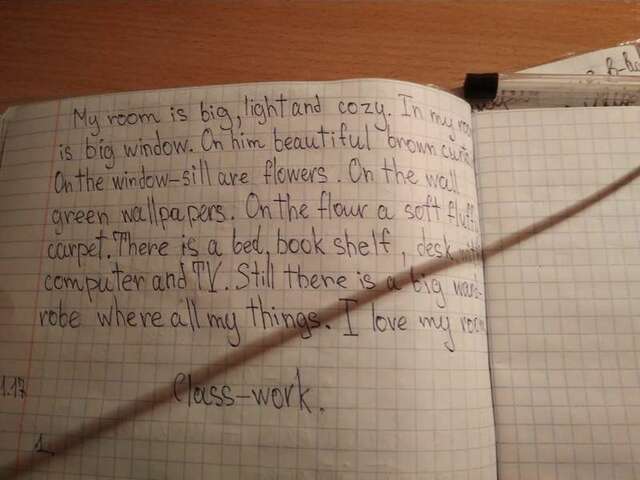 My room is big, light and cozy. In my
is big window. On him beautiful brown
On the window-sill are flowers. On the wall
green wallpapers. On the flour a soft
carpet. There is a bed, book shelf, desk with
computer and TV. Still there is a big ward-
robe where all my things. I love my room
Class-work.
1.17
1